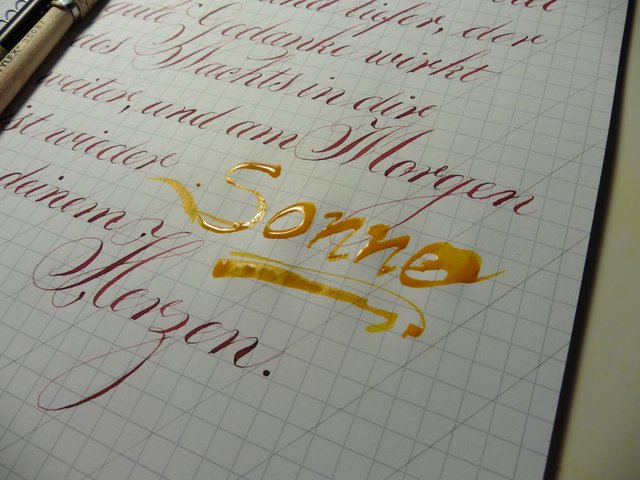 und tiefer, der
gute Gedanke wirkt
des Nachts in dir
weiter, und am Morgen
ist wieder Sonne
in deinem
Herzen.